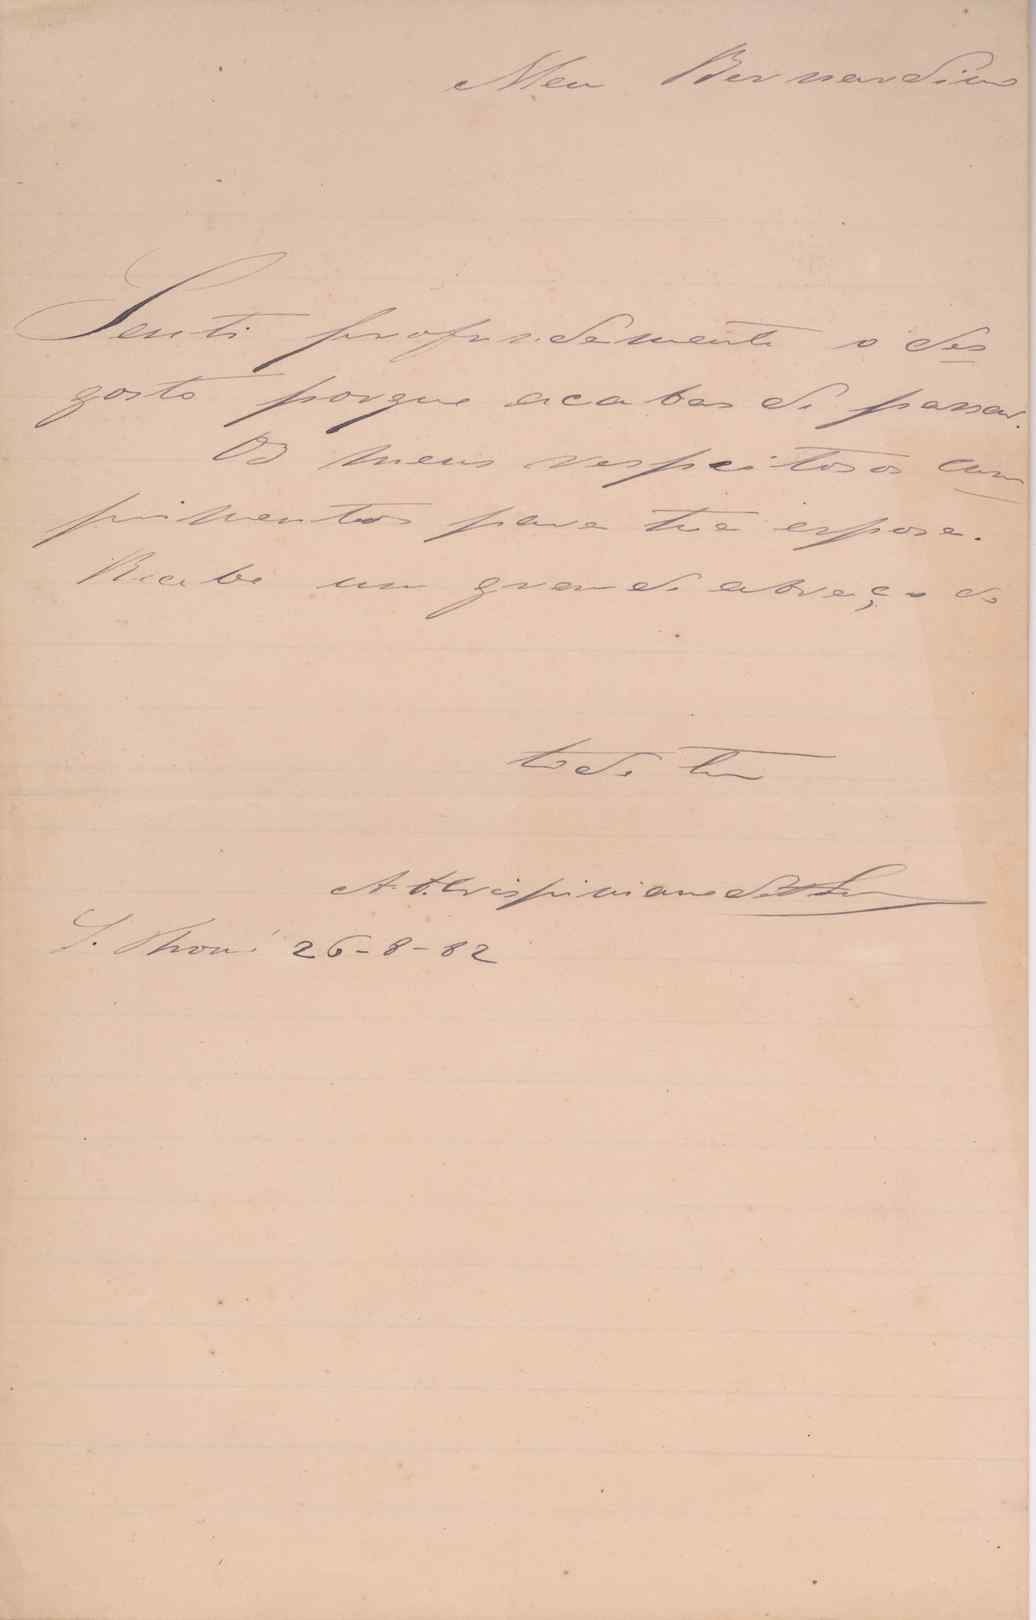 Meu Bernardino
Senti profundamente o des
gosto porque acabas de passar.
Os meus respeitosos cum
primentos para tua esposa.
Recebe um grande abraço do
todo teu
A. Crispiniano da
S. Thomé 26-8-82